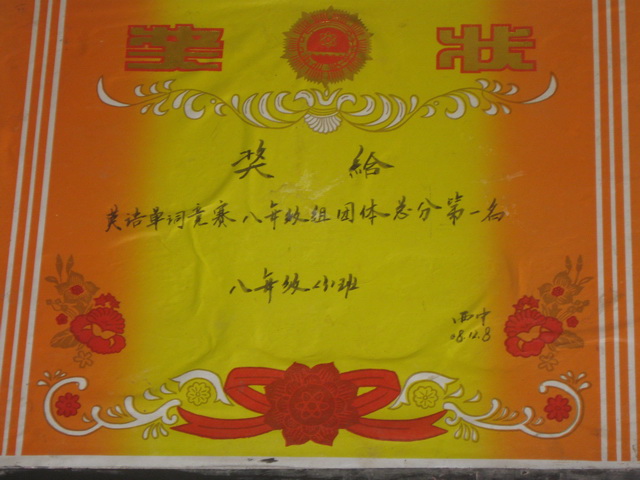 奖状
奖给
英语单词竞赛八年级组团体总分第一名
八年级(3)班
西中
08.12.8